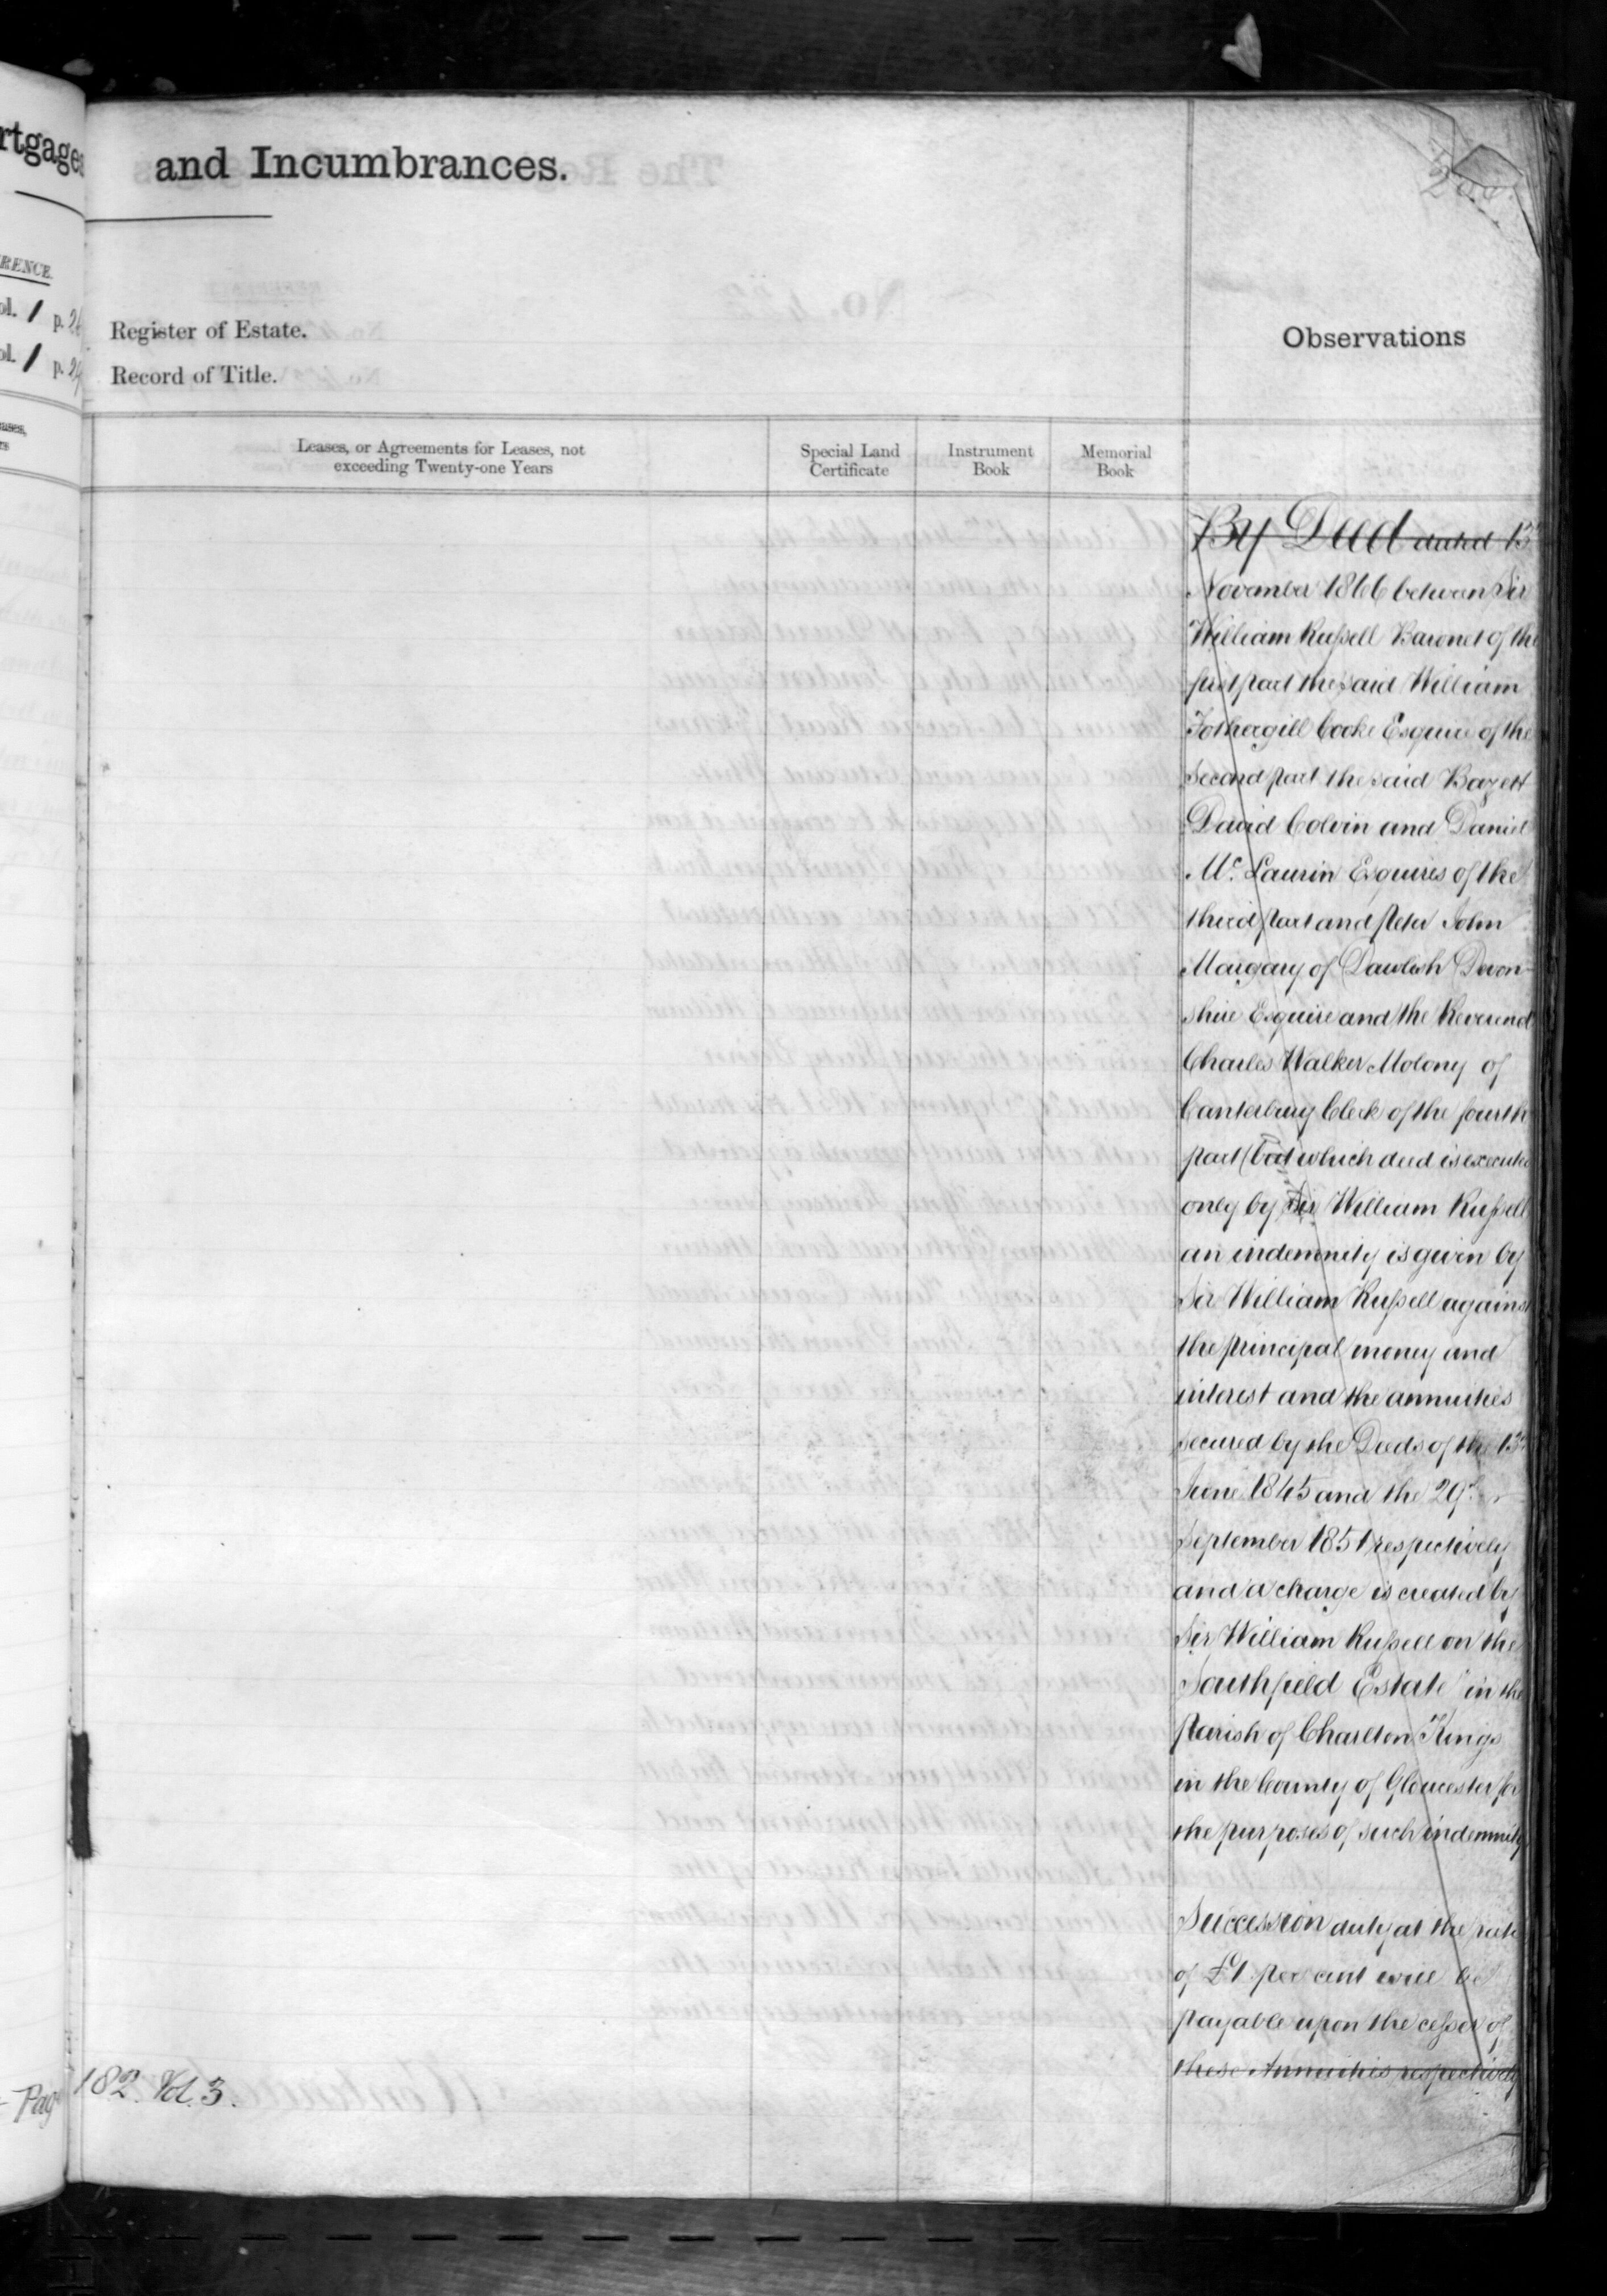 rtgages
and Incumbrances.
RENCE.
ol. 1 p.
ol. 1 p.
Register of Estate.
Record of Title.
Observations
Leases, or Agreements for Leases, not
exceeding Twenty-one Years
Special Land
Certificate
Instrument
Book
Memorial
Book
By Deed dated 13th
November 1866 between Sir
William Russell Baronet of the
first part the said William
Fothergill Cooke Esquire of the
Second part the said Bazett
David Colvin and Daniel
Mc. Laurin Esquires of the
third part and Peter John
Margary of Dawlish Devon-
shire Esquire and the Reverend
Charles Walker Molony of
Canterbury Clerk of the fourth
part (but which deed is executed
only by Sir William Russell
an indemnity is given by
Sir William Russell against
the principal money and
interest and the annuities
secured by the Deeds of the 13th
June 1845 and the 29th
September 1851 respectively
and a charge is created by
Sir William Russell on the
Southfield Estate in the
Parish of Charlton Kings
in the County of Gloucester for
the purposes of such indemnity
Succession duty at the rate
of £1 per cent will be
payable upon the cesser of
these Annuities respectively
Page 182. Vol. 3.